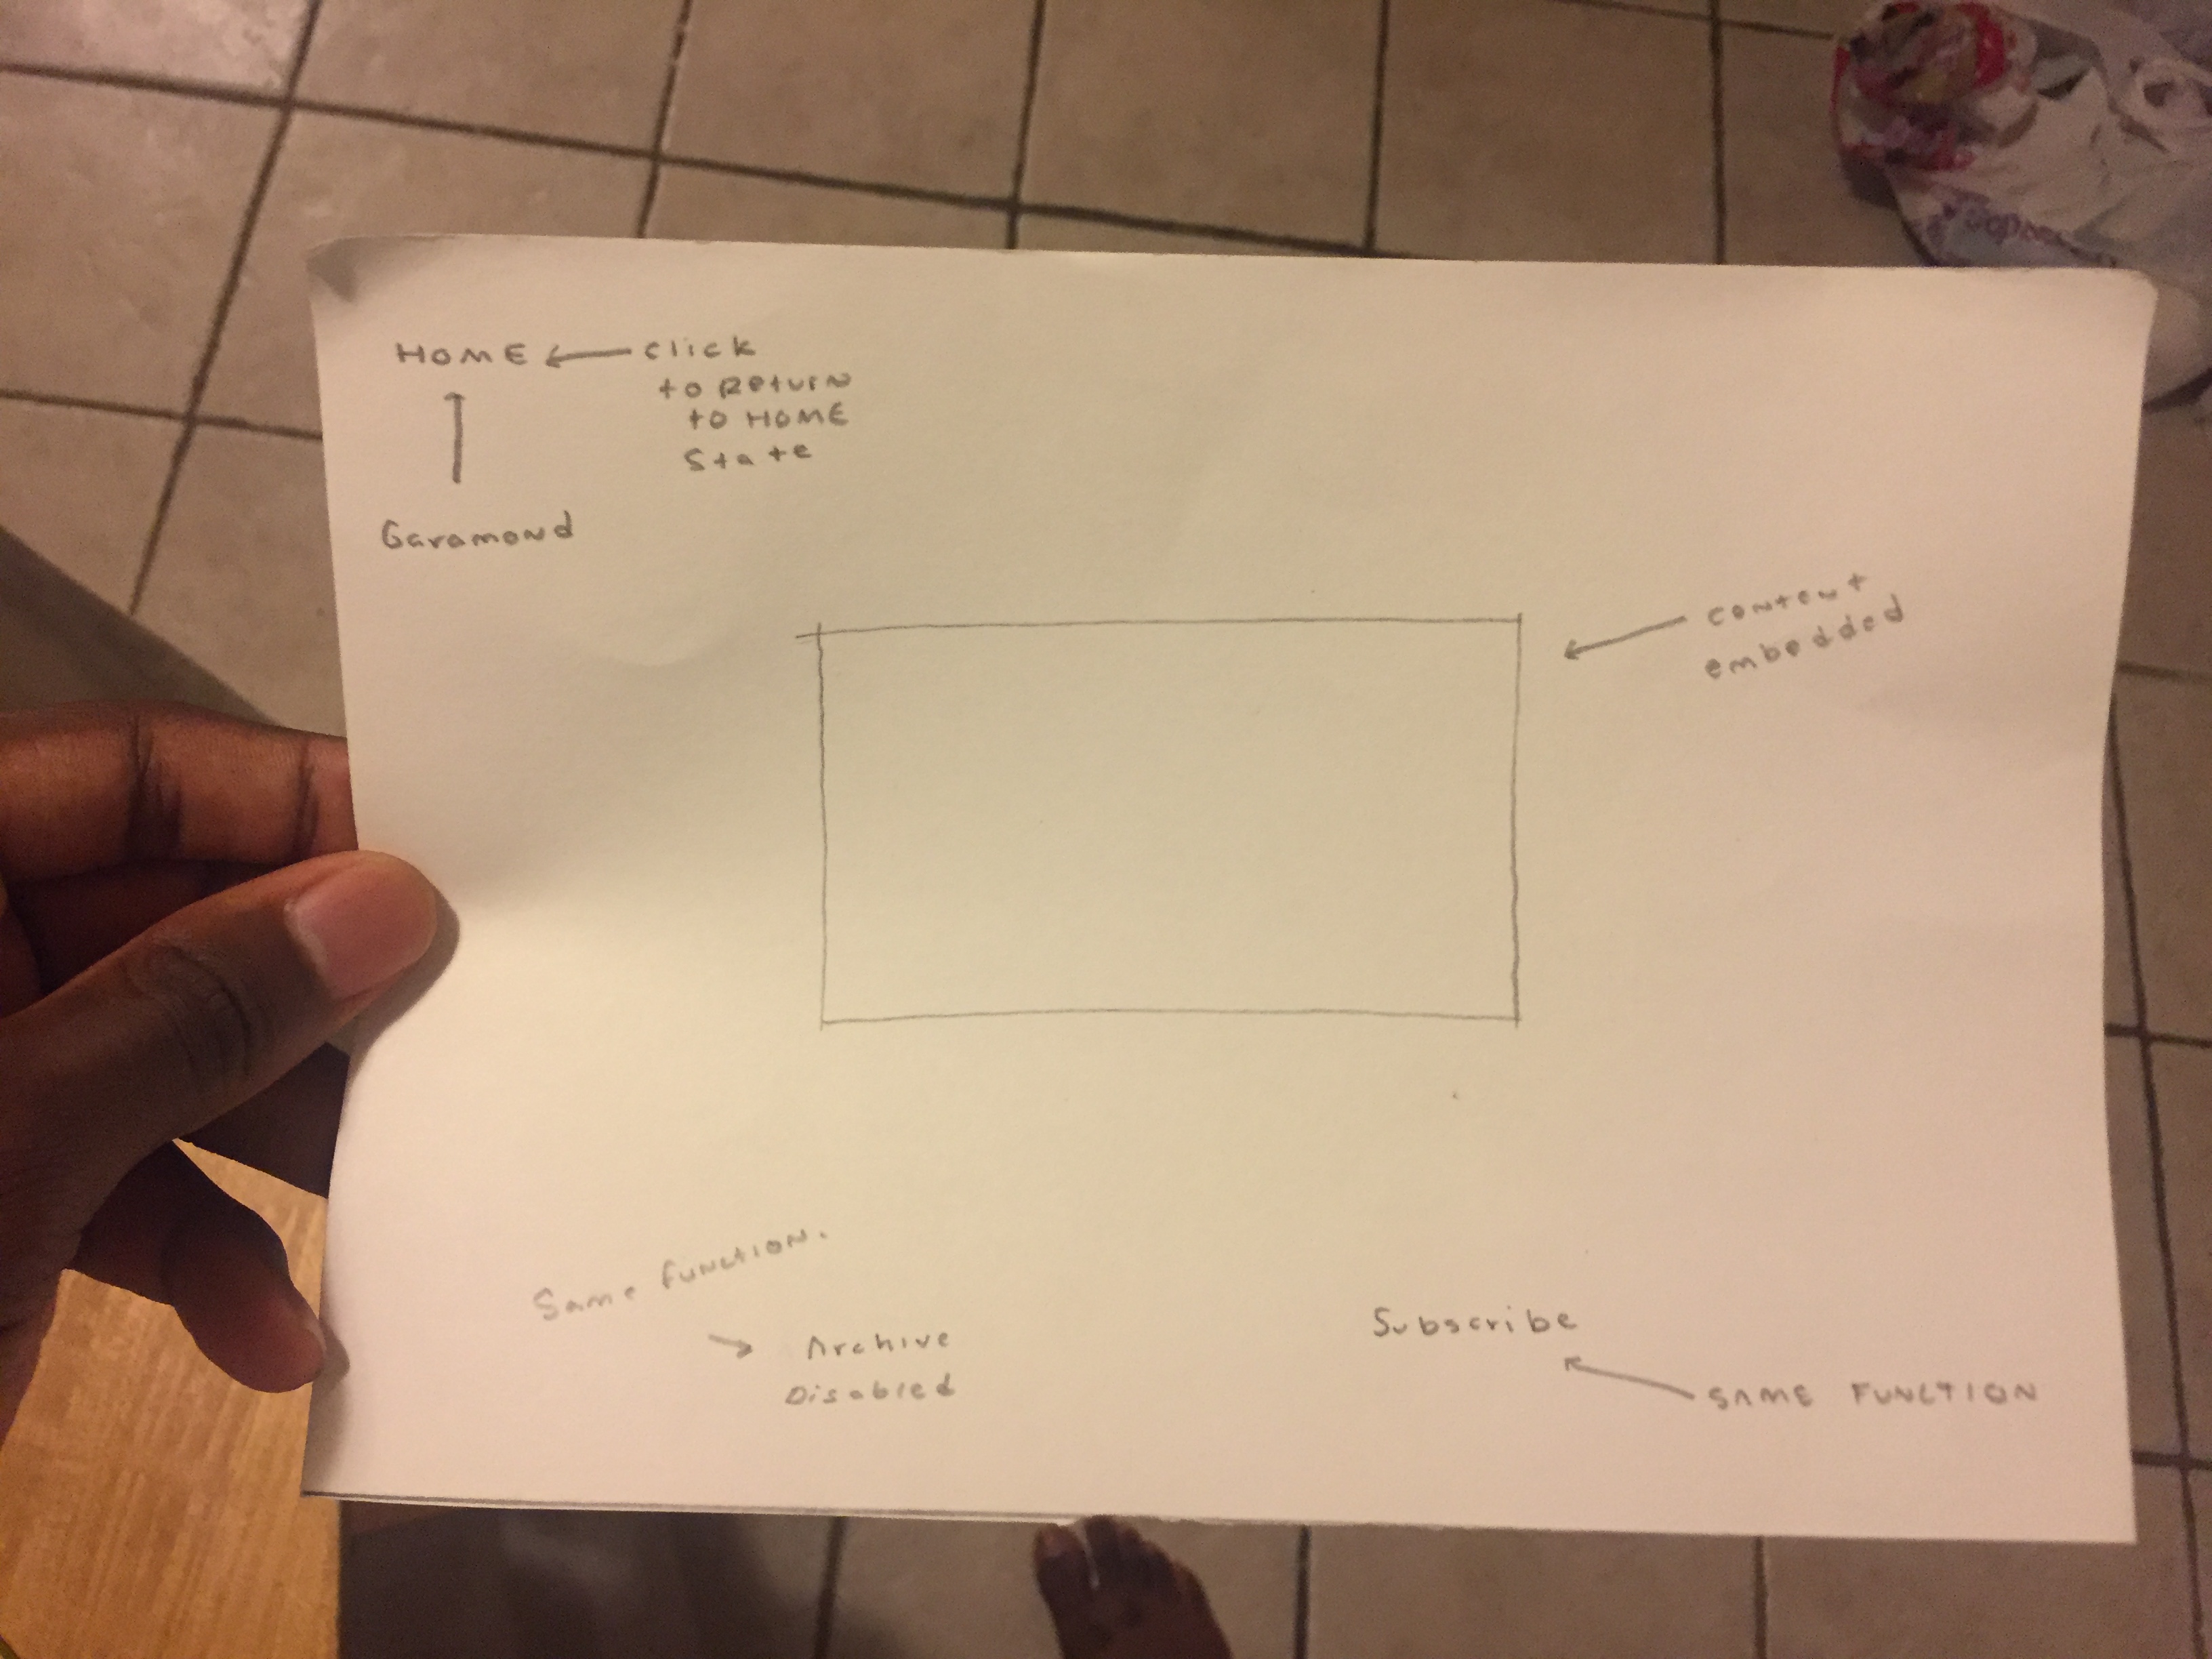 HOME
click
to Return
to HOME
State
Garamond
content
embedded
Same function.
Archive
Disabled
Subscribe
SAME FUNCTION